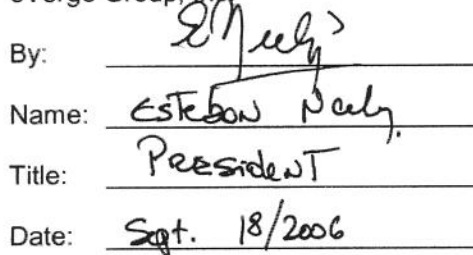 By: ENeely
Name: Esteban Neely
Title: President
Date: Sept. 18/2006